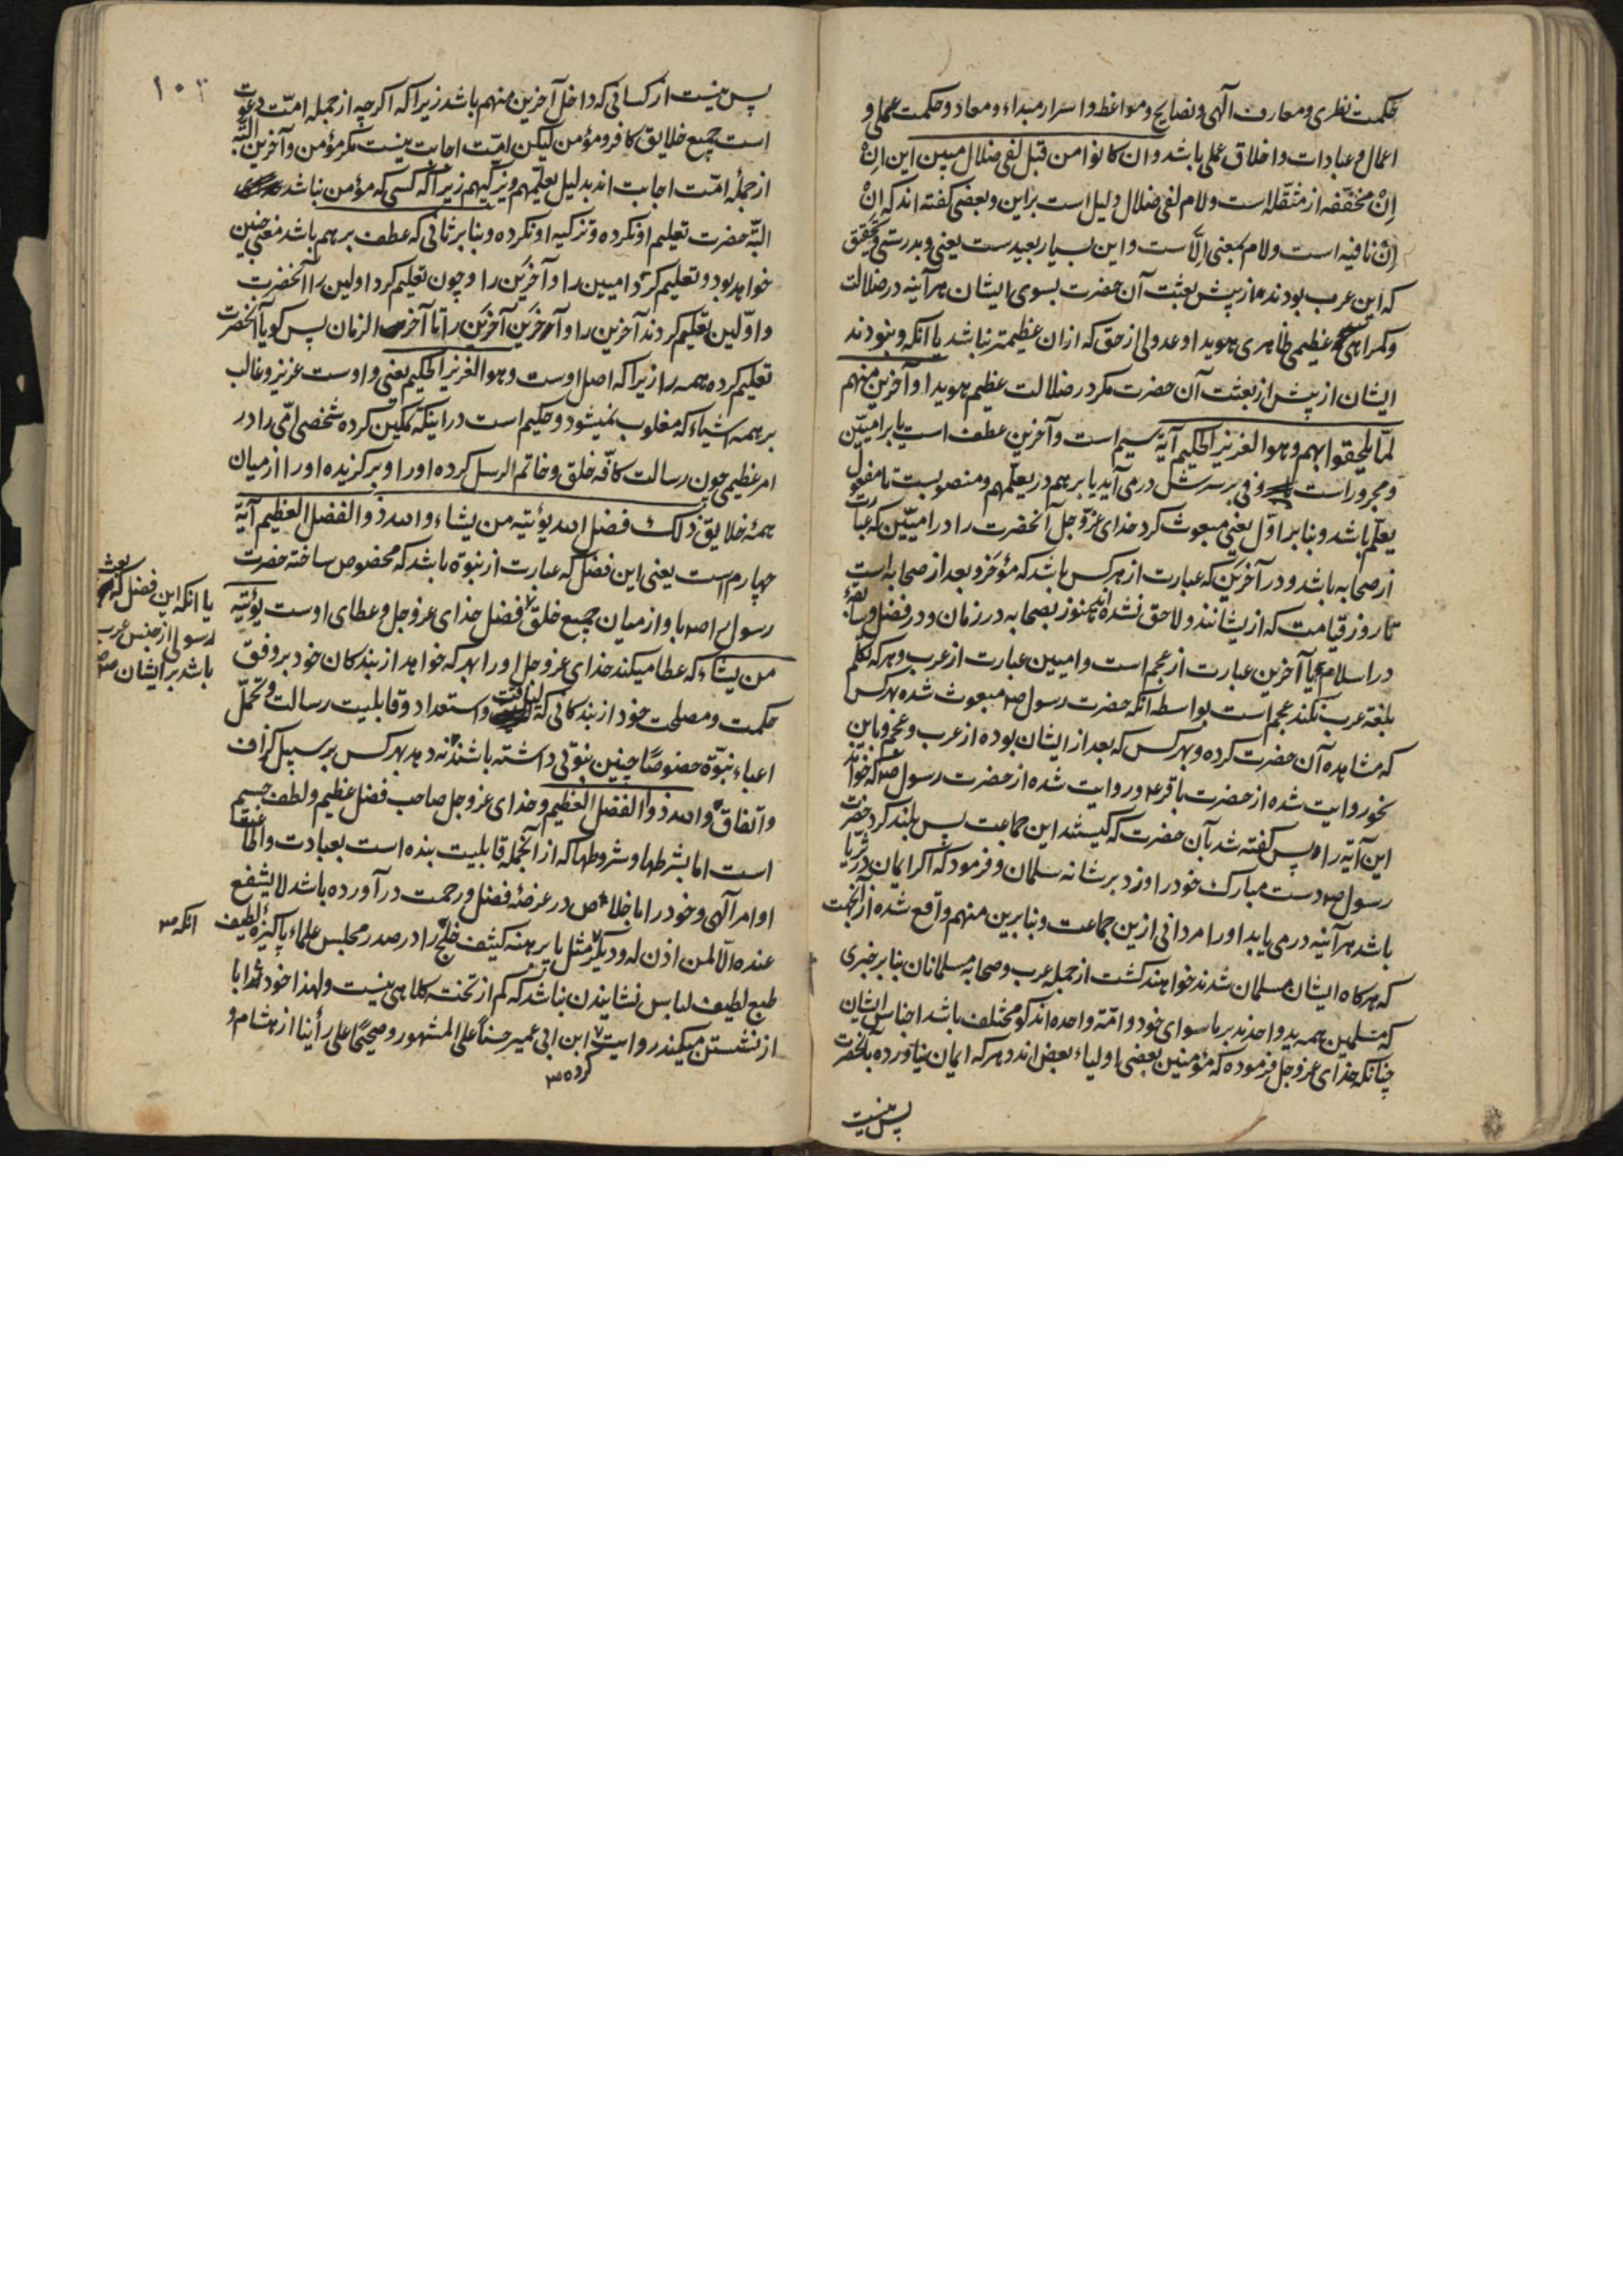 حکمت نظری و معارف الهی و نصایح و مواعظ و اسرار مبداء و معاد و حکمت عملی و
اعمال و عبادات و اخلاق عملی باشد و ان کانوا من قبل لفی ضلال مبین این اِنْ
اِنْ مخفّفه از مثقّله است و لام لفی ضلال دلیل است براین و بعضی کفته اند که اِنْ
اِنْ نافیه است و لام بمعنی اِلّا ست و این بسیار بعیدست یعنی و بدرستی و تحقیق
که این عرب بودند از پیش بعثت آن حضرت بسوی ایشان هر آینه در ضلالت
و کمراهی عظیمی ظاهری هویدا و عدولی از حق که ازان عظیمتر نباشد یا آنکه و نبودند
ایشان از پیش از بعثت آن حضرت مکر در ضلالت عظیم هویدا و آخرین منهم
لمّا یلحقوا بهم و هو العزیز الحکیم آیهٔ سیم است و آخرین عطف است یا بر امیّین
و مجرور است و فی بر سرش در می آید یا بر هم در یعلّمهم و منصوبست تا مفعول
یعلّم باشد و بنا بر اوّل یعنی مبعوث کرد خدای عزّ و جل آنحضرت را در امیّین که عبارت
از صحابه باشد و در آخرین که عبارت از هر کس باشد که مؤخر و بعد از صحابه است
تا روز قیامت که از یشانند و لاحق نشده اند هنوز بصحابه در زمان و در فضل و سابقهٔ
در اسلام یا آخرین عبارت از عجم است و امیین عبارت از عرب و هر که تکلّم
بلغة عرب نکند عجم است بواسطه آنکه حضرت رسول ص مبعوث شده بهر کس
که مشاهده آن حضرت کرده و بهر کس که بعد از ایشان بوده از عرب و عجم و باین
نحو روایت شده از حضرت باقر ع و روایت شده از حضرت رسول ص که خواند
این آیه را پس کفته شد بآن حضرت که کیستند این جماعت پس بلند کرد حضرت
رسول ص دست مبارک خود را و زد بر شانه سلمان و فرمود که اکر ایمان در ثریا
باشد هر آینه در می یابد او را مردانی ازین جماعت و بنابرین منهم واقع شده از آنجهت
که هر کاه ایشان مسلمان شدند خواهند کشت از جمله عرب و صحابه مسلمانان بنا بر خبری
که مسلمین همه ید واحدند بر ما سوای خود و امّة واحده اند کو مختلف باشد اجناس ایشان
چنانکه خدای عز و جل فرموده که مؤمنین بعضی اولیاء بعض اند و هر که ایمان نیاورده بآنحضرت
پس نیست
۱۰۳
پس نیست از کسانی که داخل آخرین منهم باشد زیرا که اکر چه از جمله امّت دعوت
است جمیع خلایق کافر و مؤمن لیکن امّت اجابت نیست مکر مؤمن و آخرین البتّه
از جملهٔ امّت اجابت اند بدلیل یعلّمهم و یزکیهم زیرا که کسی که مؤمن نباشد
البتّه حضرت تعلیم او نکرده و تزکیه او نکرده و بنا بر ثانی که عطف بر هم باشد معنی چنین
خواهد بود و تعلیم کرد امیین را و آخرین را و چون تعلیم کرد اولین را آنحضرت
و اوّلین تعلیم کردند آخرین را و آخرین آخرین را تا آخر الزمان پس کویا آنحضرت
تعلیم کرده همه را زیرا که اصل اوست و هو العزیز الحکیم یعنی و اوست عزیز و غالب
بر همه اشیاء که مغلوب نمیشود و حکیم است در اینکه تمکین کرده شخصی امّی را در
امر عظیمی چون رسالت کافّه خلق و خاتم الرسل کرده او را و برکزیده او را از میان
همهٔ خلایق ذلک فضل الله یؤتیه من یشاء و الله ذو الفضل العظیم آیهٔ
چهارم است یعنی این فضل که عبارت از نبوة باشد که مخصوص ساخته حضرت
رسول را ص با و از میان جمیع خلق فضل خدای عز و جل و عطای اوست یؤتیه
من یشاء که عطا میکند خدای عز و جل او را بهر که خواهد از بندکان خود بر وفق
حکمت و مصلحت خود از بندکانی که لیاقت و استعداد و قابلیت رسالت و تحمّل
اعباء نبوّة خصوصًا چنین نبوّتی داشته باشند نه دهد بهر کس بر سبیل کزاف
و اتفاق و الله ذو الفضل العظیم و خدای عز و جل صاحب فضل عظیم و لطف جسیم
است اما بشرطها و شروطها که از آنجمله قابلیت بنده است بعبادت و اطاعت
اوامر الهی و خود را باخلاص در عرضهٔ فضل و رحمت در آورده باشد لا یشفع
عنده الّا لمن اذن له و دیکر مثل پابرهنه کثیف را در صدر مجلس علماء پاکیزهٔ لطیف
طبع لطیف لباس نشاندن نباشد که کم از تخت کلاهی نیست و لهذا خود ابا
از نشستن میکند روایت ابن ابی عمیر حسنًا علی المشهور و صحیحًا علی رأینا از هشام و
یا انکه این فضل که بعث
رسولی از جنس عرب
باشد بر ایشان
انکه
کرده